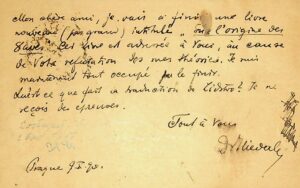 Mon cher ami, je vais à finir une livre
nouveau (pas grand) intitulé „ou l'origine des
Slaves. Cet livre est adressé à Vous, au cause
de Votre refutation des mes théories. Je suis
maintenant tout occupé par le finir.
Qu'est ce que fait la traduction de ? Je ne
reçois des épreuves.
Tout à Vous
Dr Niederle
Prague 9